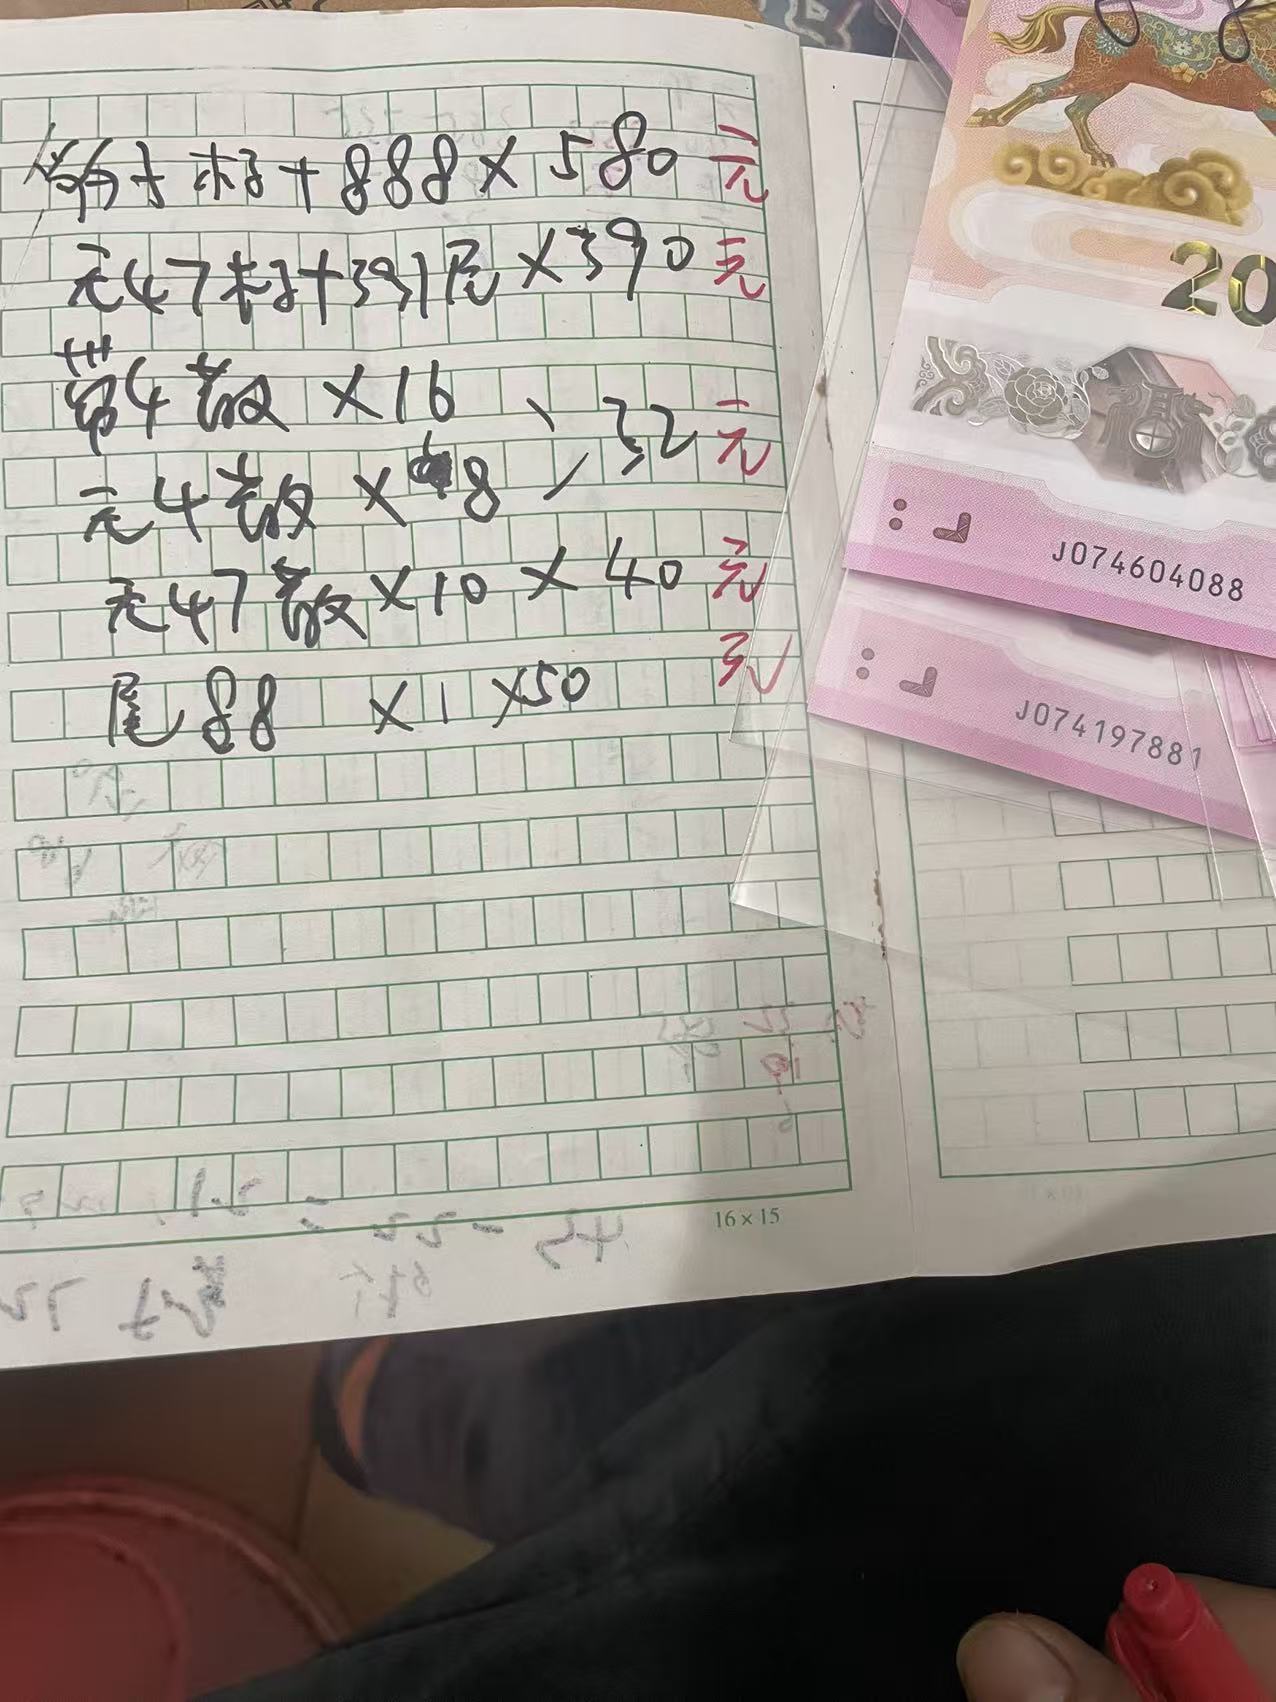 带4标+888×580元
无47标+391尾×390元
带4散×16
无4散×8、32元
无47散×10×40元
尾88 ×1 ×50元
16×15
20
J074604088
J074197881